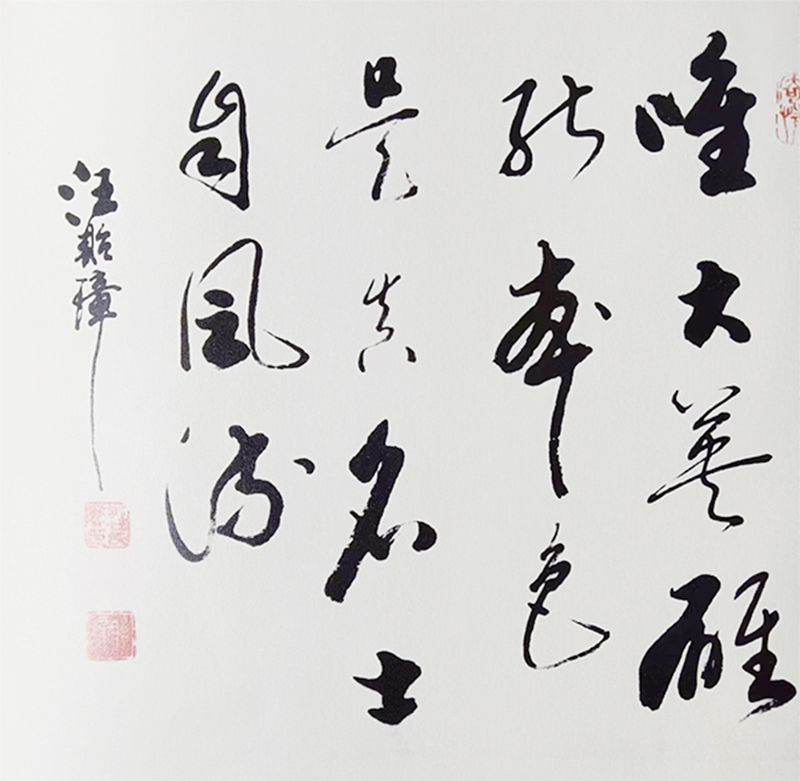 唯大英雄
能本色
是真名士
自风流
汪贻璋